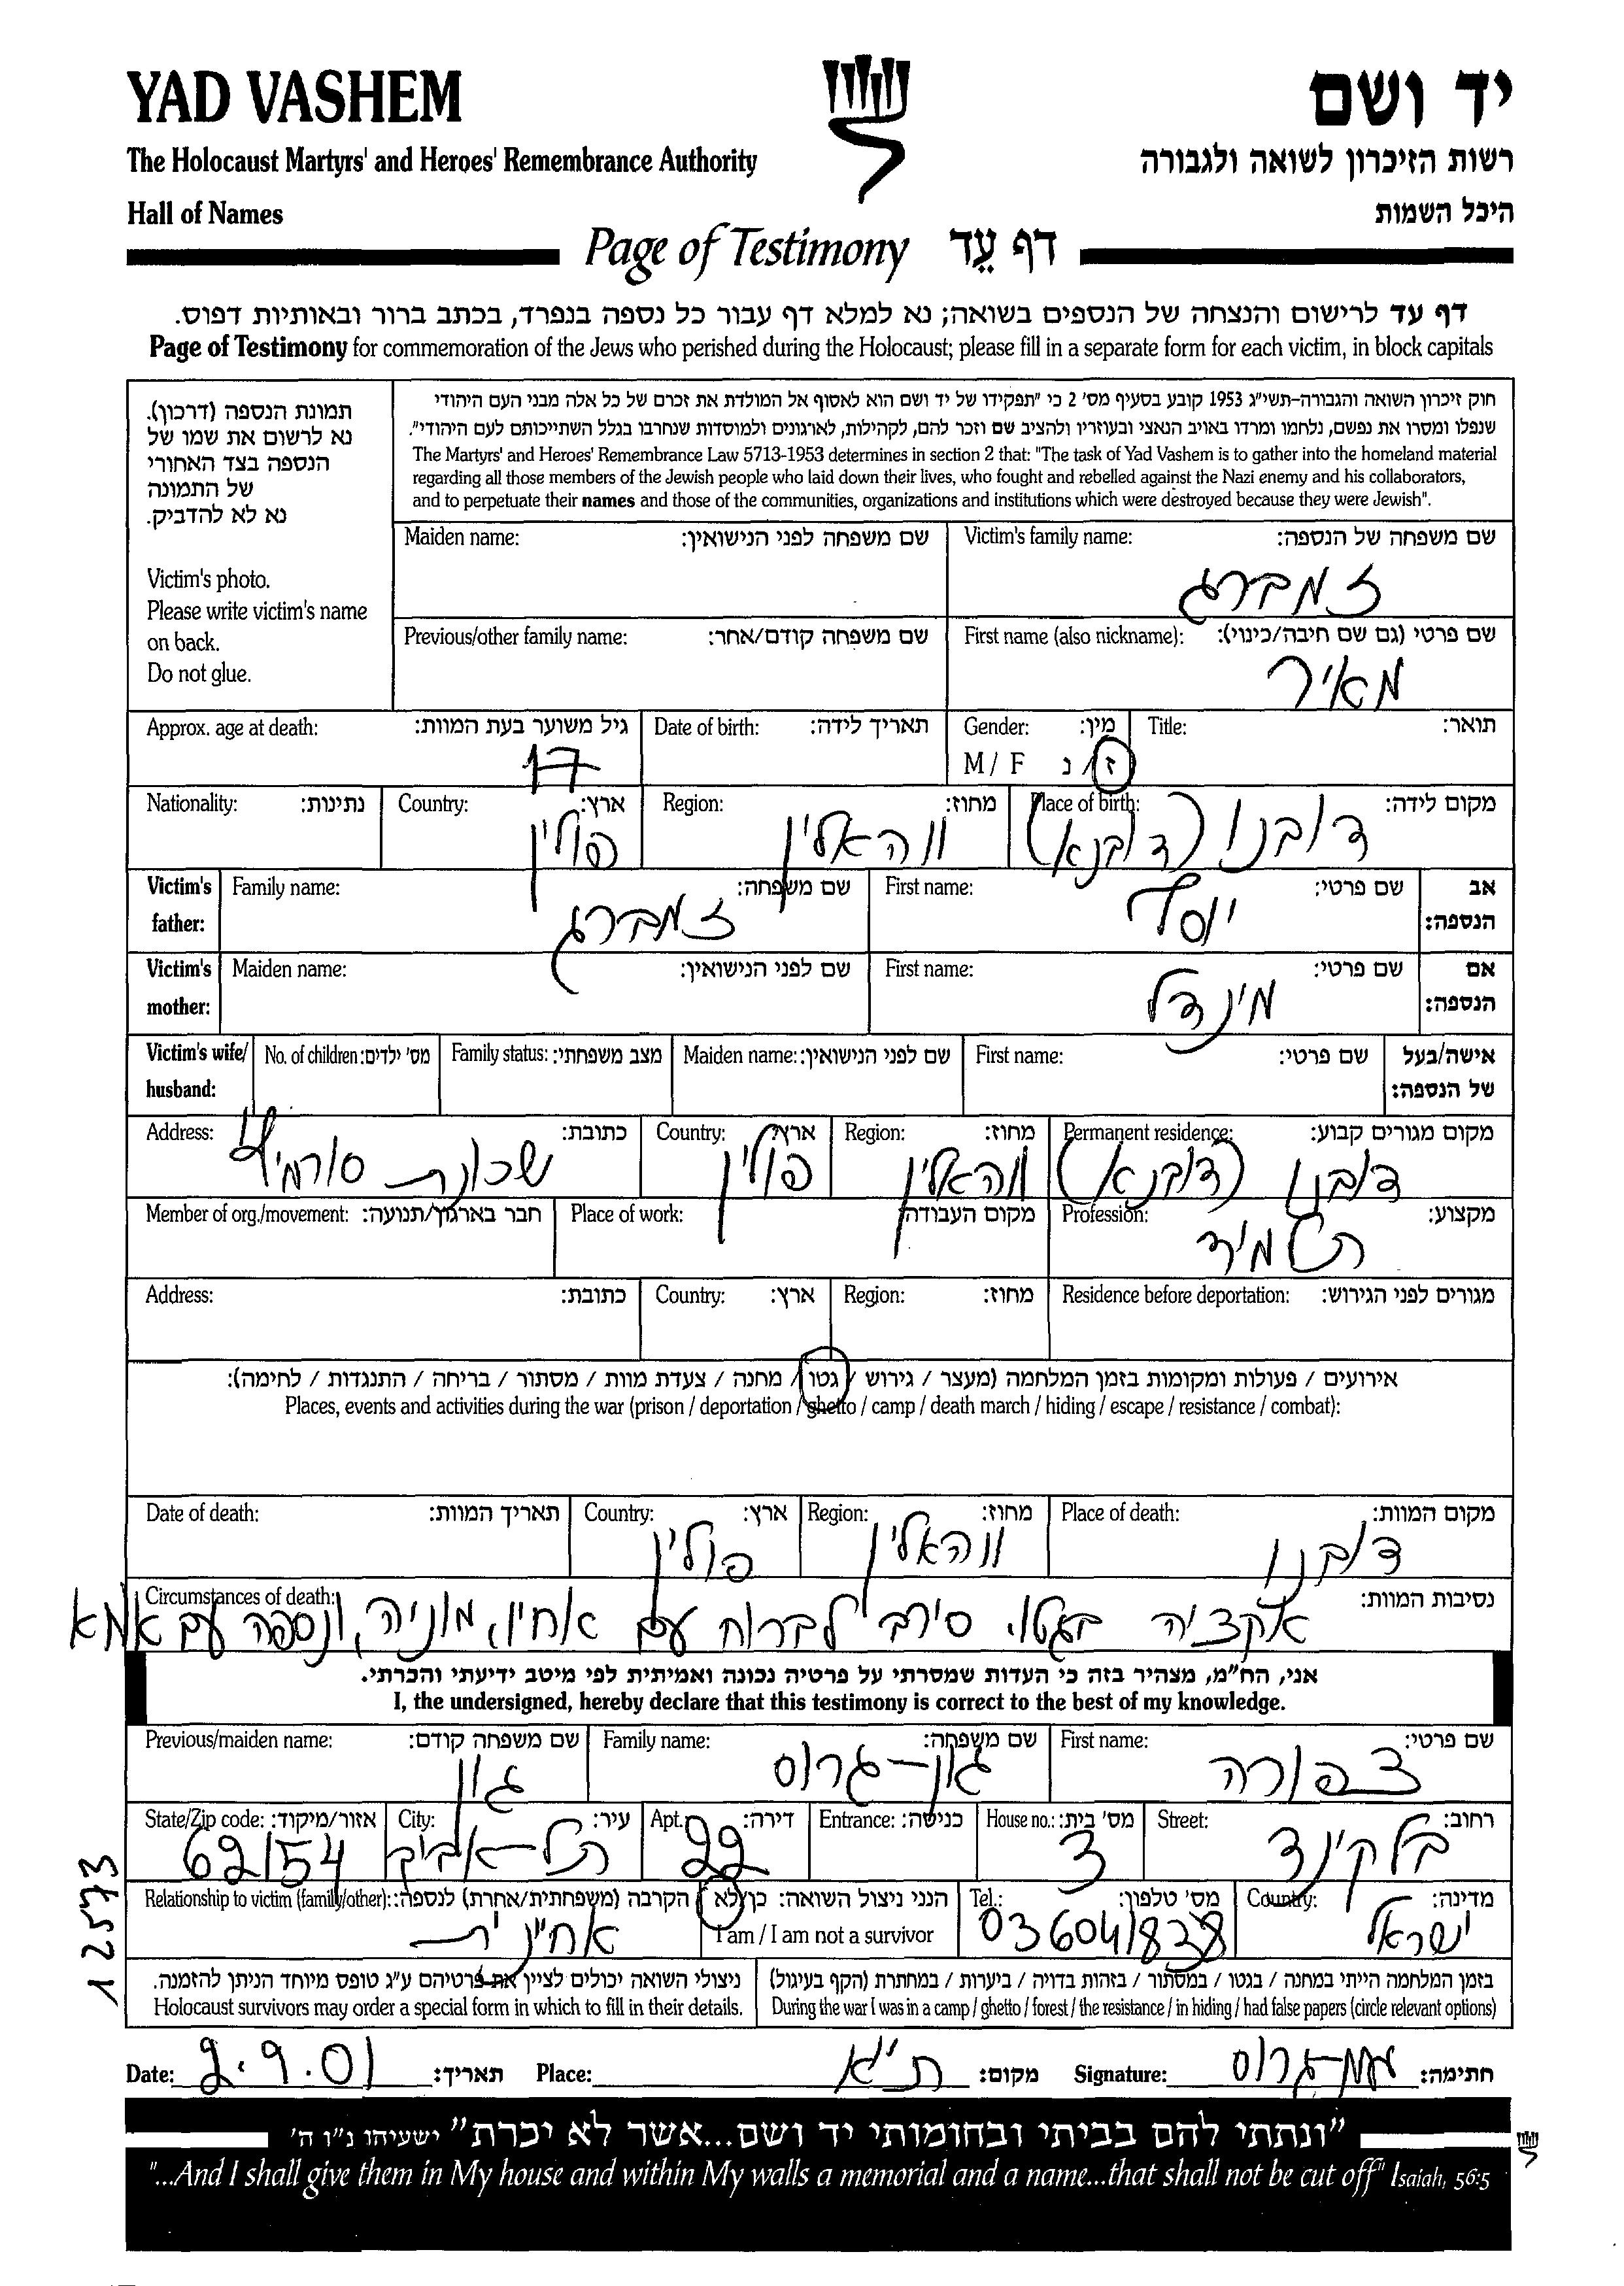 YAD VASHEM
יד ושם
The Holocaust Martyrs' and Heroes' Remembrance Authority
רשות הזיכרון לשואה ולגבורה
Hall of Names
היכל השמות
Page of Testimony דף עֵד
דף עד לרישום והנצחה של הנספים בשואה; נא למלא דף עבור כל נספה בנפרד, בכתב ברור ובאותיות דפוס.
Page of Testimony for commemoration of the Jews who perished during the Holocaust; please fill in a separate form for each victim, in block capitals
תמונת הנספה (דרכון).
נא לרשום את שמו של
הנספה בצד האחורי
של התמונה
נא לא להדביק.
Victim's photo.
Please write victim's name
on back.
Do not glue.
חוק זיכרון השואה והגבורה-תשי"ג 1953 קובע בסעיף מס' 2 כי "תפקידו של יד ושם הוא לאסוף אל המולדת את זכרם של כל אלה מבני העם היהודי
שנפלו ומסרו את נפשם, נלחמו ומרדו באויב הנאצי ובעוזריו ולהציב שם וזכר להם, לקהילות, לארגונים ולמוסדות שנחרבו בגלל השתייכותם לעם היהודי".
The Martyrs' and Heroes' Remembrance Law 5713-1953 determines in section 2 that: "The task of Yad Vashem is to gather into the homeland material
regarding all those members of the Jewish people who laid down their lives, who fought and rebelled against the Nazi enemy and his collaborators,
and to perpetuate their names and those of the communities, organizations and institutions which were destroyed because they were Jewish".
Maiden name: שם משפחה לפני הנישואין: Victim's family name: שם משפחה של הנספה:
זמברג
Previous/other family name: שם משפחה קודם/אחר: First name (also nickname): שם פרטי (גם שם חיבה/כינוי):
מאיר
Approx. age at death: גיל משוער בעת המוות: Date of birth: תאריך לידה: Gender: מין: Title: תואר:
17 M / F ז / נ
Nationality: נתינות: Country: ארץ: Region: מחוז: Place of birth: מקום לידה:
פולין ווהאלין דובנו (דובנא)
Victim's father: Family name: שם משפחה: First name: שם פרטי: אב הנספה:
זמברג יוסף
Victim's mother: Maiden name: שם לפני הנישואין: First name: שם פרטי: אם הנספה:
מינדל
Victim's wife/ husband: No. of children: מס' ילדים: Family status: מצב משפחתי: Maiden name: שם לפני הנישואין: First name: שם פרטי: אישה/בעל של הנספה:
Address: כתובת: Country: ארץ: Region: מחוז: Permanent residence: מקום מגורים קבוע:
שכונת פולין ווהאלין דובנו (דובנא)
Member of org./movement: חבר בארגון/תנועה: Place of work: מקום העבודה: Profession: מקצוע:
תלמיד
Address: כתובת: Country: ארץ: Region: מחוז: Residence before deportation: מגורים לפני הגירוש:
אירועים / פעולות ומקומות בזמן המלחמה (מעצר / גירוש / גטו / מחנה / צעדת מוות / מסתור / בריחה / התנגדות / לחימה):
Places, events and activities during the war (prison / deportation / ghetto / camp / death march / hiding / escape / resistance / combat):
Date of death: תאריך המוות: Country: ארץ: Region: מחוז: Place of death: מקום המוות:
פולין ווהאלין דובנו
Circumstances of death: נסיבות המוות:
אקציה בגטו, סירב לברוח עם אחיו, מוניה, ונספה עם אמא
אני, הח"מ, מצהיר בזה כי העדות שמסרתי על פרטיה נכונה ואמיתית לפי מיטב ידיעתי והכרתי.
I, the undersigned, hereby declare that this testimony is correct to the best of my knowledge.
Previous/maiden name: שם משפחה קודם: Family name: שם משפחה: First name: שם פרטי:
גון גון-גרוס צפורה
State/Zip code: אזור/מיקוד: City: עיר: Apt.: דירה: Entrance: כניסה: House no.: מס' בית: Street: רחוב:
62154 תל-אביב 22 3 בלקינד
Relationship to victim (family/other): הקרבה (משפחתית/אחרת) לנספה: הנני ניצול השואה: כן/לא Tel.: מס' טלפון: Country: מדינה:
אחיינית I am / I am not a survivor 036041838 ישראל
ניצולי השואה יכולים לציין את פרטיהם ע"ג טופס מיוחד הניתן להזמנה.
Holocaust survivors may order a special form in which to fill in their details.
בזמן המלחמה הייתי במחנה / בגטו / במסתור / בזהות בדויה / ביערות / במחתרת (הקף בעיגול)
During the war I was in a camp / ghetto / forest / the resistance / in hiding / had false papers (circle relevant options)
12573
Date: 2.9.01 תאריך: Place: ת"א מקום: Signature: חתימה:
"ונתתי להם בביתי ובחומותי יד ושם...אשר לא יכרת" ישעיהו נ"ו ה'
"...And I shall give them in My house and within My walls a memorial and a name...that shall not be cut off" Isaiah, 56:5